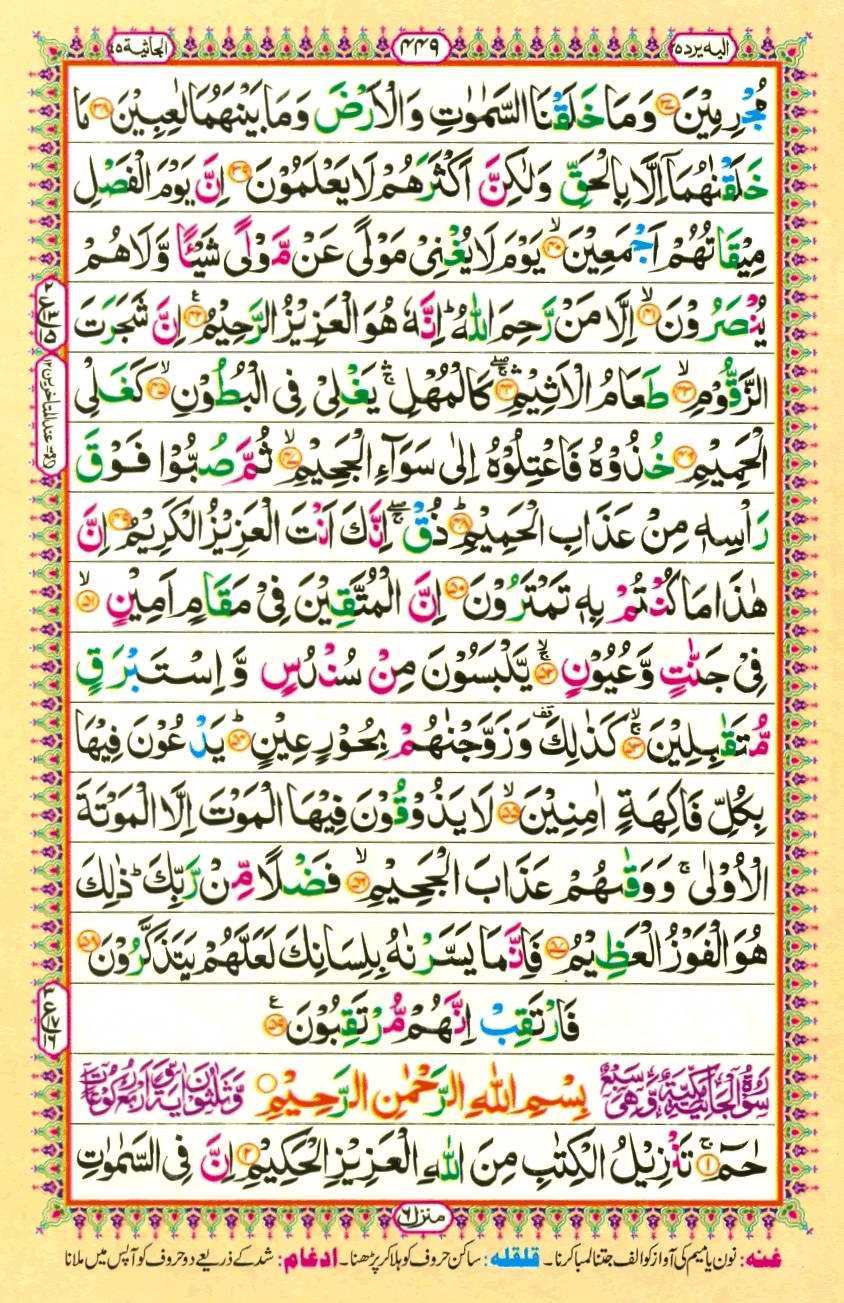 الیه یرده ٢٥
٤٤٩
الجاثیة ٤٥
مُجْرِمِیْنَ ﴿٣٧﴾ وَمَا خَلَقْنَا السَّمٰوٰتِ وَالْاَرْضَ وَمَا بَیْنَهُمَا لٰعِبِیْنَ ﴿٣٨﴾ مَا
خَلَقْنٰهُمَاۤ اِلَّا بِالْحَقِّ وَلٰكِنَّ اَكْثَرَهُمْ لَا یَعْلَمُوْنَ ﴿٣٩﴾ اِنَّ یَوْمَ الْفَصْلِ
مِیْقَاتُهُمْ اَجْمَعِیْنَ ﴿٤٠﴾ۙ یَوْمَ لَا یُغْنِیْ مَوْلًی عَنْ مَّوْلًی شَیْـًٔا وَّلَا هُمْ
یُنْصَرُوْنَ ﴿٤١﴾ۙ اِلَّا مَنْ رَّحِمَ اللّٰهُ ؕ اِنَّهٗ هُوَ الْعَزِیْزُ الرَّحِیْمُ ﴿٤٢﴾ع اِنَّ شَجَرَتَ
الزَّقُّوْمِ ﴿٤٣﴾ۙ طَعَامُ الْاَثِیْمِ ﴿٤٤﴾ۛۖۚ كَالْمُهْلِ ۛۚ یَغْلِیْ فِی الْبُطُوْنِ ﴿٤٥﴾ۙ كَغَلْیِ
الْحَمِیْمِ ﴿٤٦﴾ خُذُوْهُ فَاعْتِلُوْهُ اِلٰی سَوَآءِ الْجَحِیْمِ ﴿٤٧﴾ۙ ثُمَّ صُبُّوْا فَوْقَ
رَاْسِهٖ مِنْ عَذَابِ الْحَمِیْمِ ﴿٤٨﴾ؕ ذُقْ ۚۖ اِنَّكَ اَنْتَ الْعَزِیْزُ الْكَرِیْمُ ﴿٤٩﴾ اِنَّ
هٰذَا مَا كُنْتُمْ بِهٖ تَمْتَرُوْنَ ﴿٥٠﴾ اِنَّ الْمُتَّقِیْنَ فِیْ مَقَامٍ اَمِیْنٍ ﴿٥١﴾ۙ
فِیْ جَنّٰتٍ وَّعُیُوْنٍ ﴿٥٢﴾ۚۙ یَّلْبَسُوْنَ مِنْ سُنْدُسٍ وَّاِسْتَبْرَقٍ
مُّتَقٰبِلِیْنَ ﴿٥٣﴾ۚۙ كَذٰلِكَ قف وَزَوَّجْنٰهُمْ بِحُوْرٍ عِیْنٍ ﴿٥٤﴾ؕ یَدْعُوْنَ فِیْهَا
بِكُلِّ فَاكِهَةٍ اٰمِنِیْنَ ﴿٥٥﴾ۙ لَا یَذُوْقُوْنَ فِیْهَا الْمَوْتَ اِلَّا الْمَوْتَةَ
الْاُوْلٰی ۚ وَوَقٰىهُمْ عَذَابَ الْجَحِیْمِ ﴿٥٦﴾ۙ فَضْلًا مِّنْ رَّبِّكَ ؕ ذٰلِكَ
هُوَ الْفَوْزُ الْعَظِیْمُ ﴿٥٧﴾ فَاِنَّمَا یَسَّرْنٰهُ بِلِسَانِكَ لَعَلَّهُمْ یَتَذَكَّرُوْنَ ﴿٥٨﴾
فَارْتَقِبْ اِنَّهُمْ مُّرْتَقِبُوْنَ ﴿٥٩﴾ع
سُوْرَةُ الْجَاثِیَةِ مَكِّیَّةٌ وَّهِیَ سَبْعٌ بِسْمِ اللّٰهِ الرَّحْمٰنِ الرَّحِیْمِ وَّثَلٰثُوْنَ اٰیَةً وَّاَرْبَعُ رُكُوْعَاتٍ
حٰمٓ ﴿١﴾ۚ تَنْزِیْلُ الْكِتٰبِ مِنَ اللّٰهِ الْعَزِیْزِ الْحَكِیْمِ ﴿٢﴾ اِنَّ فِی السَّمٰوٰتِ
منزل ٦
غنه: نون یا میم کی آواز کو الف جتنا لمبا کرنا۔ قلقله: ساکن حروف کو ہلا کر پڑھنا۔ ادغام: شد کے ذریعے دو حروف کو آپس میں ملانا